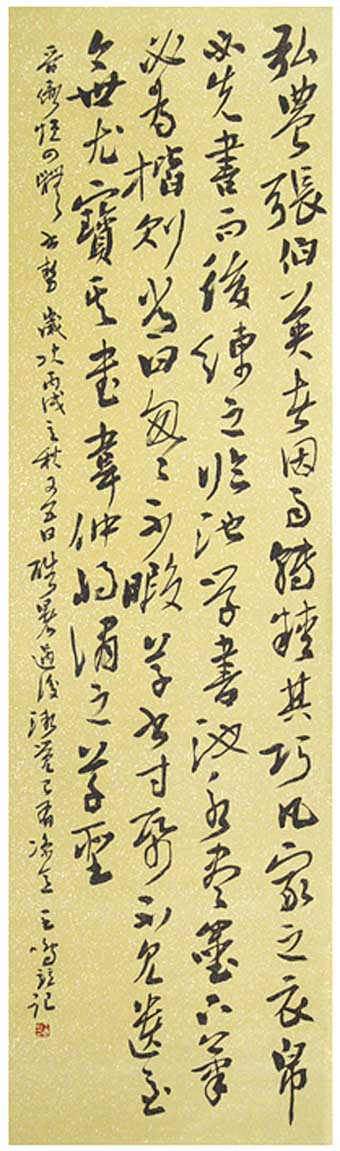 弘農張伯英者因而轉精其巧凡家之衣帛
必先書而後練之臨池學書池水盡墨下筆
必為楷則常曰匆々不暇草書寸紙不見遺至
今世尤寶其書韋仲將謂之草聖
晉衛恒四體書勢 歲次丙戌之秋日酷暑過後漸覺已有涼意 王記